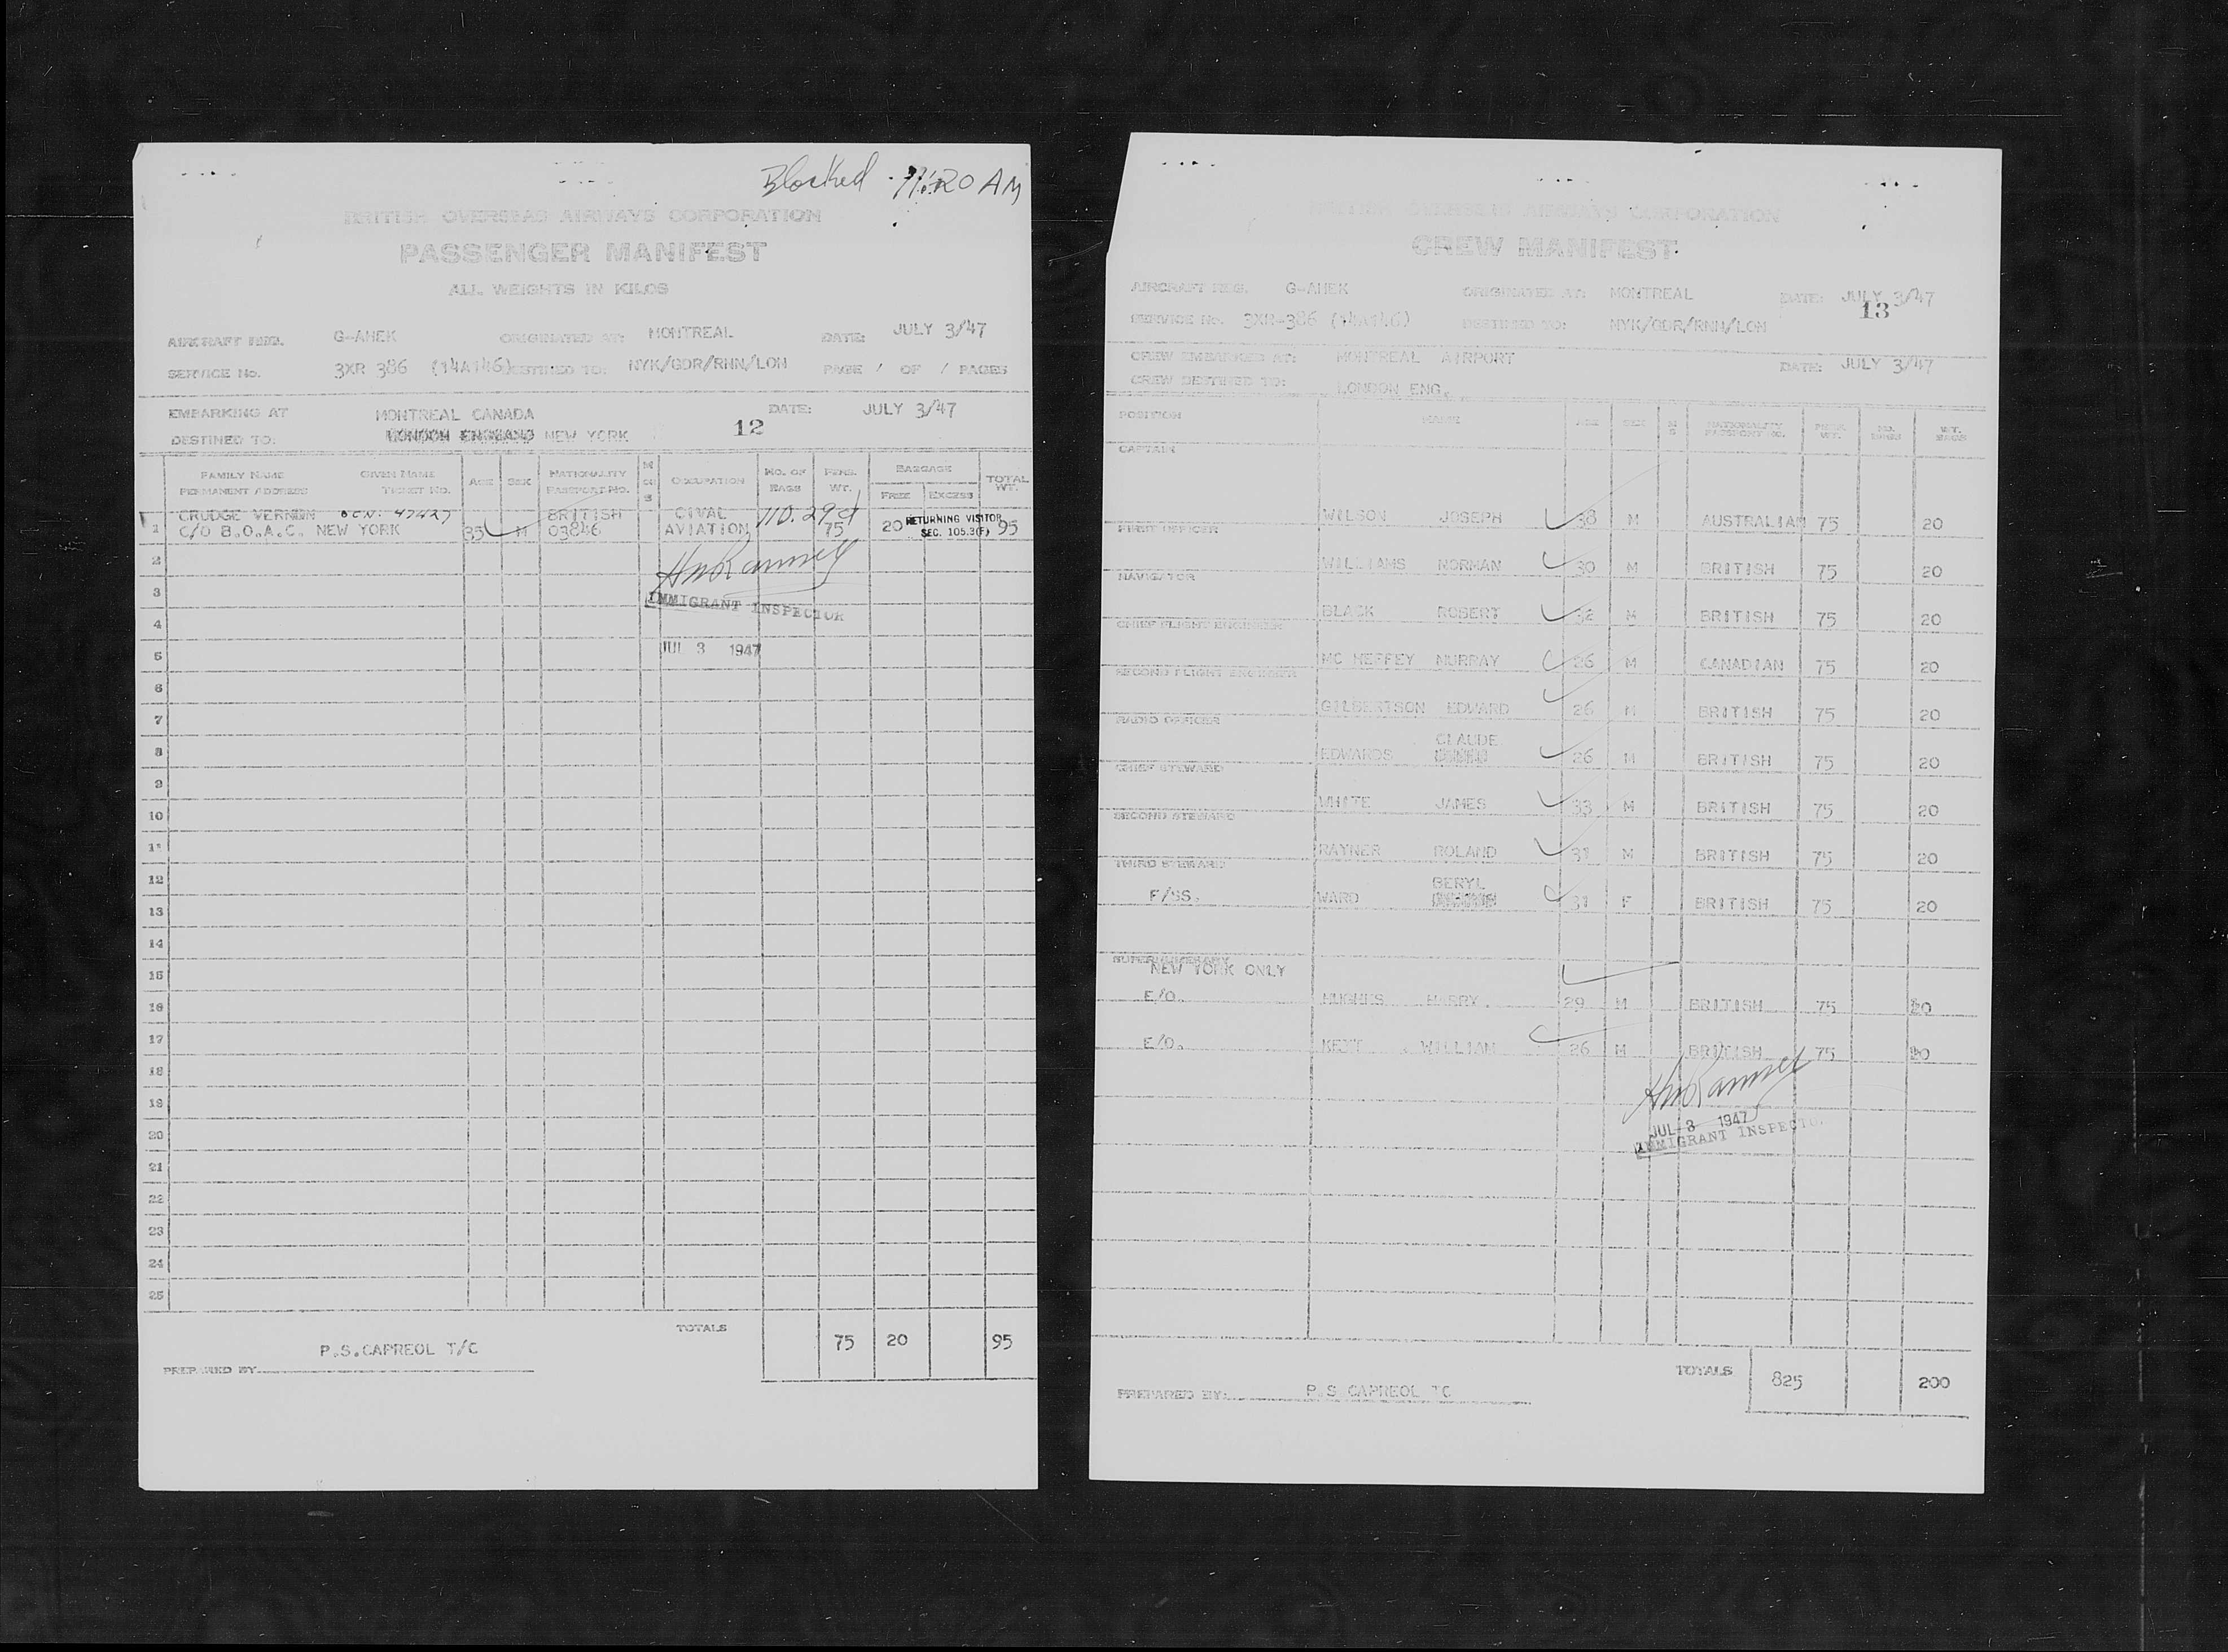 Blocked 11:20 AM
BRITISH OVERSEAS AIRWAYS CORPORATION
PASSENGER MANIFEST
ALL WEIGHTS IN KILOS
AIRCRAFT REG. G-AHEK ORIGINATED AT: MONTREAL DATE: JULY 3/47
SERVICE No. 3XR 386 (14A146) DESTINED TO: NYK/GDR/RNN/LON PAGE 1 OF 1 PAGES
EMBARKING AT MONTREAL CANADA DATE: JULY 3/47
DESTINED TO: LONDON ENGLAND NEW YORK 12
FAMILY NAME GIVEN NAME AGE SEX NATIONALITY OCCUPATION NO. OF BAGS PERS. WT. BAGGAGE TOTAL WT.
PERMANENT ADDRESS TICKET NO. PASSPORT NO. FREE EXCESS
CRUDGE VERNON 47427 BRITISH CIVAL
1 C/O B.O.A.C. NEW YORK 35 M 03846 AVIATION 75 20 RETURNING VISITOR SEC. 105.3(F) 95
2
3 IMMIGRANT INSPECTOR
4
5 JUL 3 1947
6
7
8
9
10
11
12
13
14
15
16
17
18
19
20
21
22
23
24
25
TOTALS 75 20 95
P.S.CAPREOL T/C
PREPARED BY
BRITISH OVERSEAS AIRWAYS CORPORATION
CREW MANIFEST
AIRCRAFT REG. G-AHEK ORIGINATED AT: MONTREAL DATE: JULY 3/47
13
SERVICE No. 3XR-386 (14A146) DESTINED TO: NYK/GDR/RNN/LON
CREW EMBARKED AT: MONTREAL AIRPORT DATE: JULY 3/47
CREW DESTINED TO: LONDON ENG.
POSITION NAME AGE SEX NATIONALITY PASSPORT NO. PERS. WT. NO. BAGS WT. BAGS
CAPTAIN
WILSON JOSEPH 38 M AUSTRALIAN 75 20
FIRST OFFICER
WILLIAMS NORMAN 30 M BRITISH 75 20
NAVIGATOR
BLACK ROBERT 32 M BRITISH 75 20
CHIEF FLIGHT ENGINEER
MC HEFFEY MURRAY 26 M CANADIAN 75 20
SECOND FLIGHT ENGINEER
GILBERTSON EDWARD 26 M BRITISH 75 20
RADIO OFFICER
CLAUDE
EDWARDS 26 M BRITISH 75 20
CHIEF STEWARD
WHITE JAMES 33 M BRITISH 75 20
SECOND STEWARD
RAYNER ROLAND 31 M BRITISH 75 20
THIRD STEWARD
BERYL
F/SS. WARD 31 F BRITISH 75 20
SUPERNUMERARY
NEW YORK ONLY
E/O. HUGHES HARRY. 29 M BRITISH 75 20
E/O. KENT WILLIAM 26 M BRITISH 75 20
JUL 3 1947
IMMIGRANT INSPECTOR
TOTALS 825 200
PREPARED BY: P.S CAPREOL TC